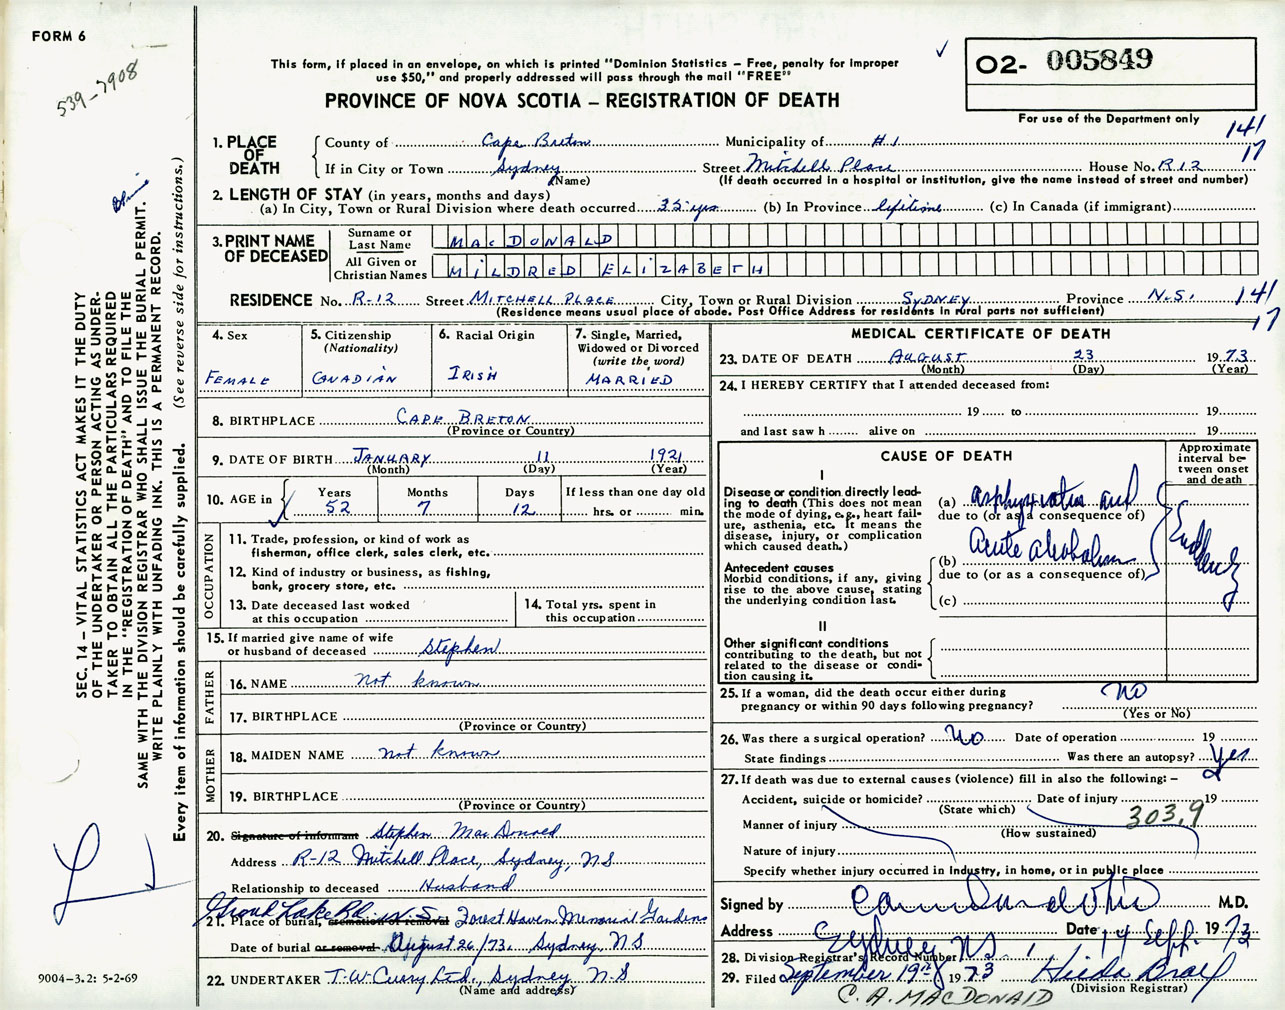 FORM 6
539-7908
This form, if placed in an envelope, on which is printed "Dominion Statistics – Free, penalty for improper
use $50," and properly addressed will pass through the mail "FREE"
PROVINCE OF NOVA SCOTIA – REGISTRATION OF DEATH
O2- 005849
For use of the Department only
141
17
1. PLACE OF DEATH
County of Cape Breton Municipality of #1
If in City or Town Sydney Street Mitchell Place House No. R12
(Name) (If death occurred in a hospital or institution, give the name instead of street and number)
2. LENGTH OF STAY (in years, months and days)
(a) In City, Town or Rural Division where death occurred 35 yrs (b) In Province lifetime (c) In Canada (if immigrant)
3. PRINT NAME OF DECEASED
Surname or Last Name MacDONALD
All Given or Christian Names MILDRED ELIZABETH
RESIDENCE No. R-12 Street MITCHELL PLACE City, Town or Rural Division SYDNEY Province N.S. 141
(Residence means usual place of abode. Post Office Address for residents in rural parts not sufficient) 17
4. Sex
FEMALE
5. Citizenship
(Nationality)
CANADIAN
6. Racial Origin
IRISH
7. Single, Married,
Widowed or Divorced
(write the word)
MARRIED
8. BIRTHPLACE CAPE BRETON
(Province or Country)
9. DATE OF BIRTH JANUARY 11 1921
(Month) (Day) (Year)
10. AGE in Years Months Days If less than one day old
52 7 12 hrs. or min.
OCCUPATION
11. Trade, profession, or kind of work as
fisherman, office clerk, sales clerk, etc.
12. Kind of industry or business, as fishing,
bank, grocery store, etc.
13. Date deceased last worked
at this occupation
14. Total yrs. spent in
this occupation
15. If married give name of wife
or husband of deceased Stephen
FATHER
16. NAME Not known
17. BIRTHPLACE
(Province or Country)
MOTHER
18. MAIDEN NAME Not known
19. BIRTHPLACE
(Province or Country)
20. Signature of informant Stephen MacDonald
Address R-12 Mitchell Place, Sydney, NS
Relationship to deceased Husband
Lake Rd. N.S.
21. Place of burial, cremation or removal Forest Haven Memorial Gardens
Date of burial or removal August 26/73. Sydney, NS
22. UNDERTAKER T.W. Curry Ltd., Sydney N.S
(Name and address)
MEDICAL CERTIFICATE OF DEATH
23. DATE OF DEATH AUGUST 23 1973
(Month) (Day) (Year)
24. I HEREBY CERTIFY that I attended deceased from:
19 to 19
and last saw h alive on 19
CAUSE OF DEATH
Approximate
interval be-
tween onset
and death
I
Disease or condition directly lead-
ing to death (This does not mean
the mode of dying, e.g., heart fail-
ure, asthenia, etc. It means the
disease, injury, or complication
which caused death.)
(a) asphyxiation and
due to (or as a consequence of)
Antecedent causes
Morbid conditions, if any, giving
rise to the above cause, stating
the underlying condition last.
(b) Acute alcoholism
due to (or as a consequence of)
(c)
II
Other significant conditions
contributing to the death, but not
related to the disease or condi-
tion causing it.
25. If a woman, did the death occur either during
pregnancy or within 90 days following pregnancy? NO
(Yes or No)
26. Was there a surgical operation? No Date of operation 19
State findings Was there an autopsy? Yes
27. If death was due to external causes (violence) fill in also the following: –
Accident, suicide or homicide? Date of injury 19
(State which) 303.9
Manner of injury
(How sustained)
Nature of injury
Specify whether injury occurred in Industry, in home, or in public place
Signed by M.D.
Address Sydney NS. Date 14 Sept. 1973
28. Division Registrar's Record Number
29. Filed September 19th 1973 Hilda
(Division Registrar)
C. A. MACDONALD
SEC. 14 – VITAL STATISTICS ACT MAKES IT THE DUTY
OF THE UNDERTAKER OR PERSON ACTING AS UNDER-
TAKER TO OBTAIN ALL THE PARTICULARS REQUIRED
IN THE "REGISTRATION OF DEATH" AND TO FILE THE
SAME WITH THE DIVISION REGISTRAR WHO SHALL ISSUE THE BURIAL PERMIT.
WRITE PLAINLY WITH UNFADING INK. THIS IS A PERMANENT RECORD.
Every item of information should be carefully supplied. (See reverse side for instructions.)
9004-3.2: 5-2-69